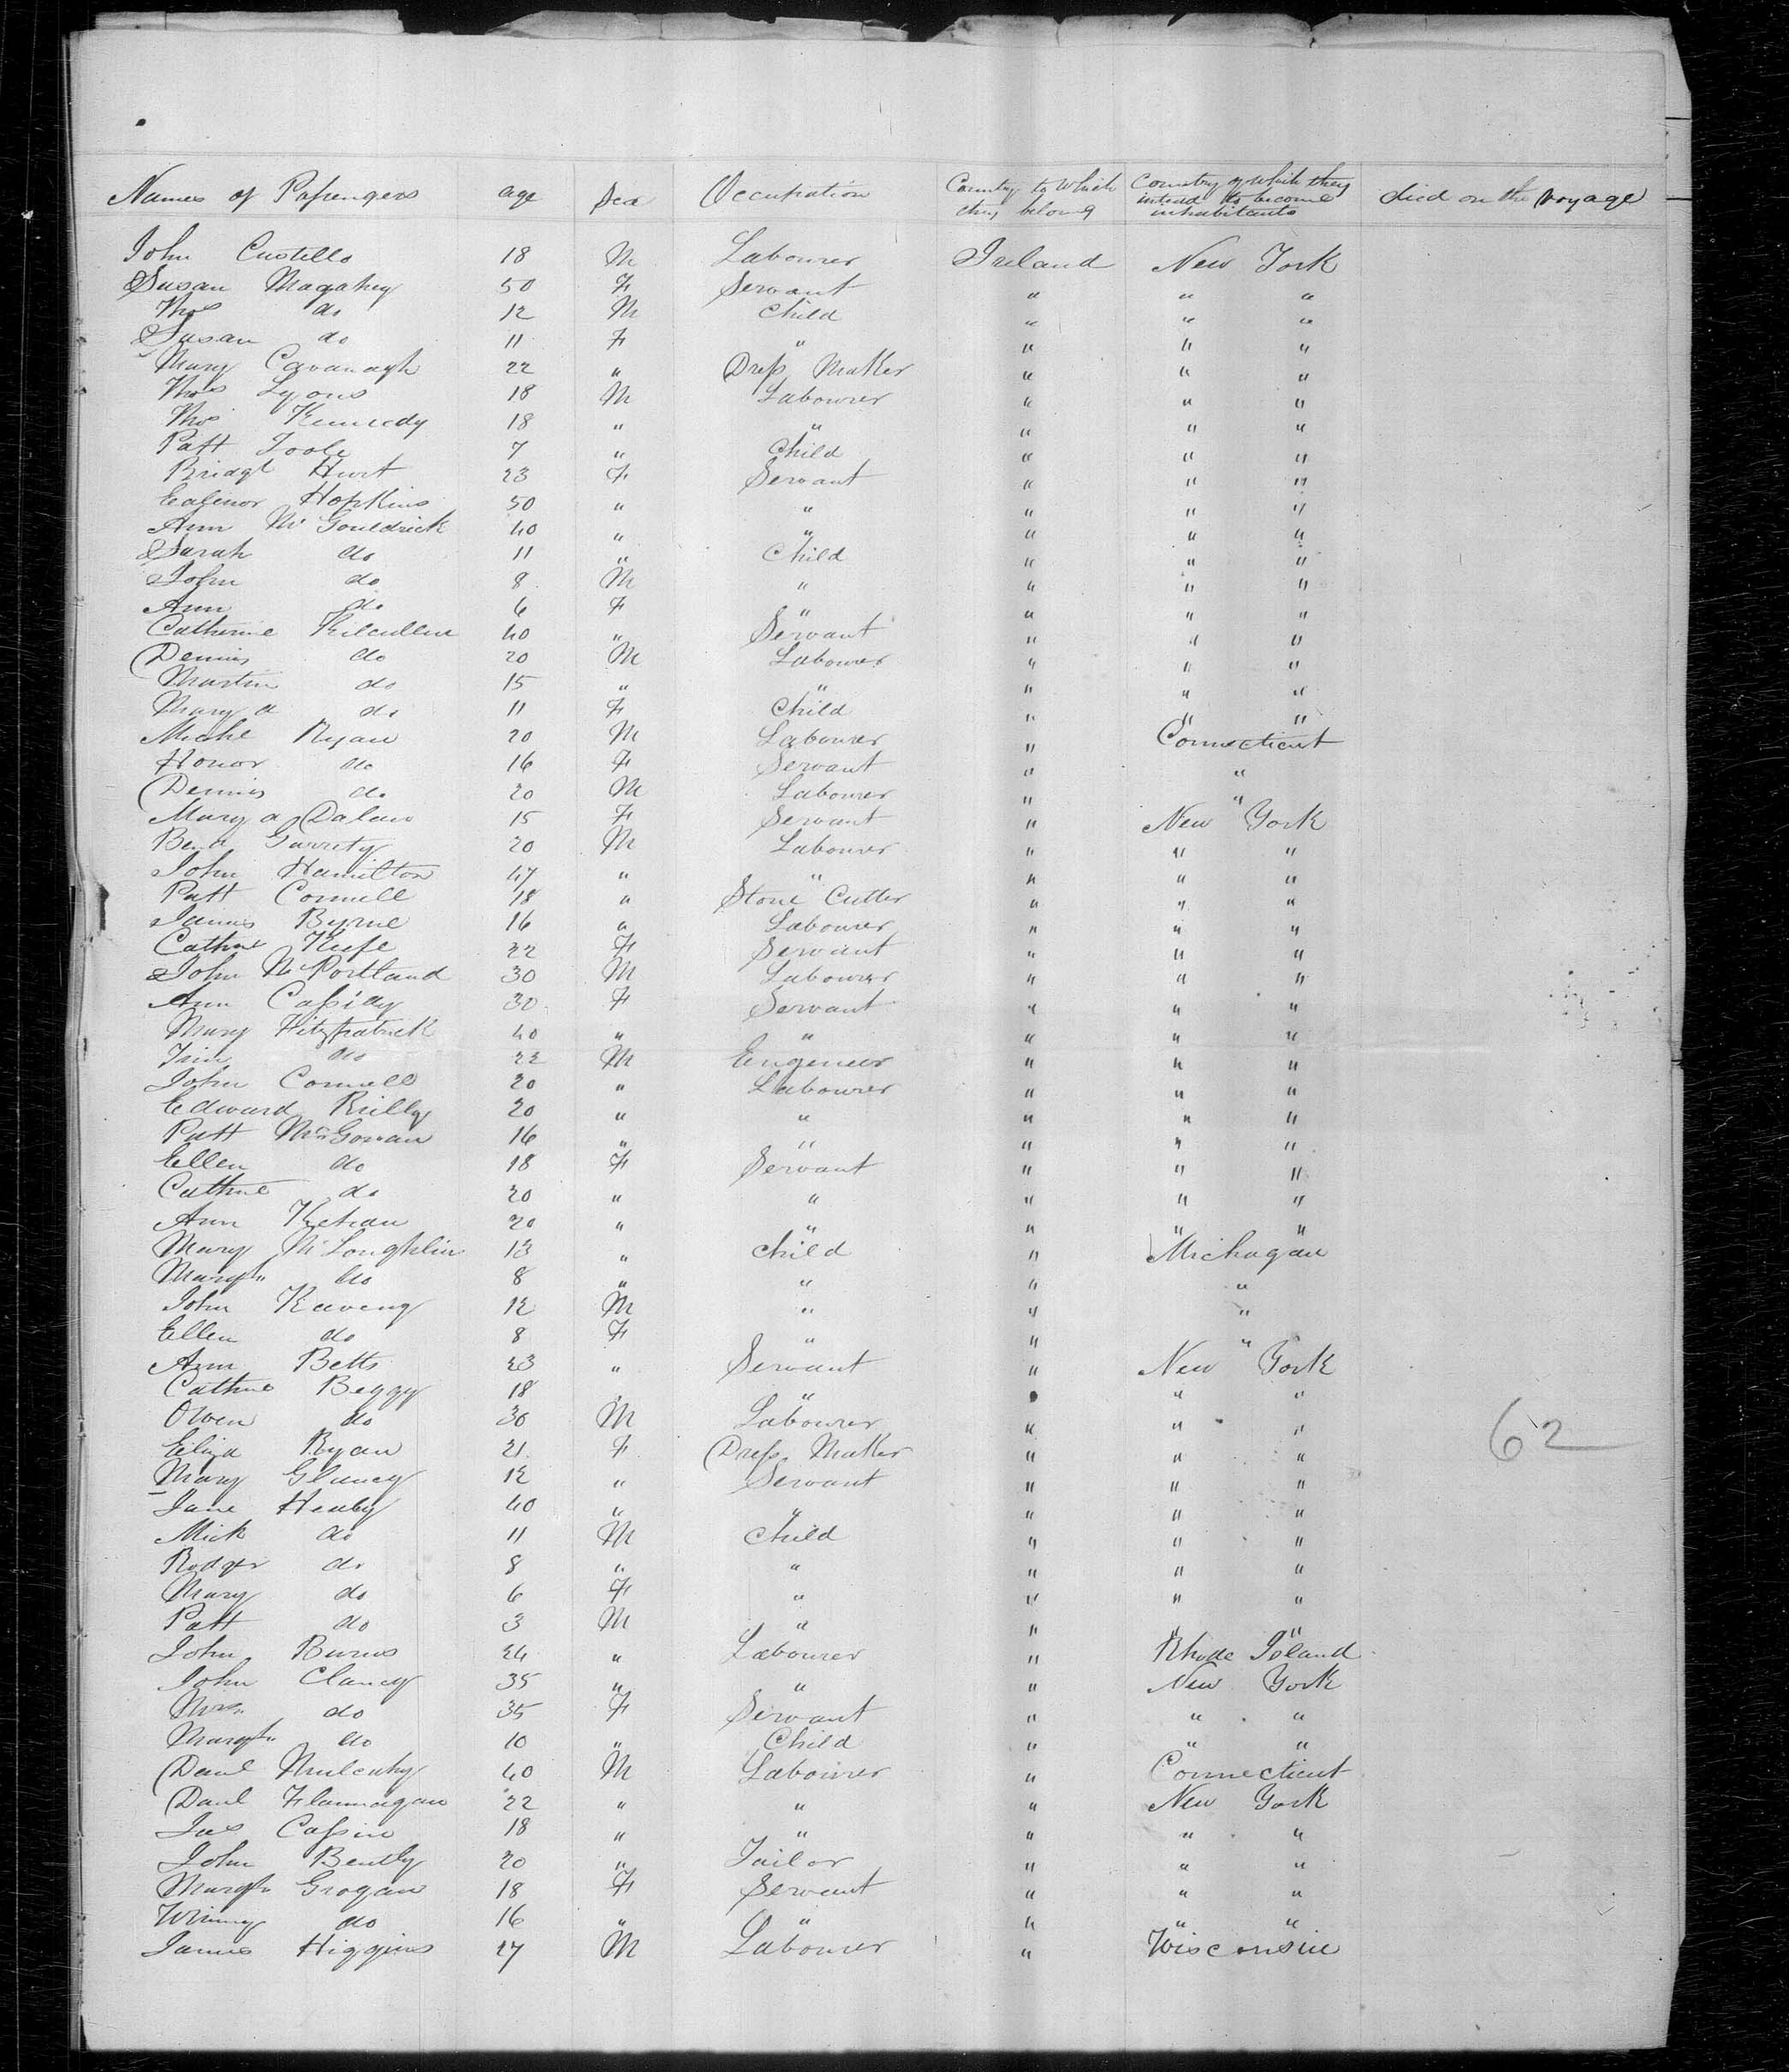 Names of Passengers age Sex Occupation Country to Which they belong Country of which they intend to become inhabitants died on the voyage
John Custello 18 M Labourer Ireland New York
Susan Magahey 50 F Servant " " "
Thos do 12 M Child " " "
Susan do 11 F " " " "
Mary Cavanagh 22 " Dress Maker " " "
Thos Lyons 18 M Labourer " " "
Thos Kennedy 18 " " " " "
Patt Toole 7 " Child " " "
Bridgt Hurt 23 F Servant " " "
Eleanor Hopkins 50 " " " " "
Ann McGouldrick 40 " " " " "
Sarah do 11 " Child " " "
John do 8 M " " " "
Ann do 6 F " " " "
Catherine Kilcullen 40 " Servant " " "
Dennis do 20 M Labourer " " "
Martin do 15 " " " " "
Mary a do 11 F Child " " "
Michl Ryan 20 M Labourer " Connecticut
Honor do 16 F Servant " "
Dennis do 20 M Labourer " "
Mary a Dalan 15 F Servant " New York
Garrity 20 M Labourer " " "
John Hamilton 47 " " " " "
Patt Connell 18 " Stone Cutter " " "
James Byrne 16 " Labourer " " "
Cathne Keefe 22 F Servant " " "
John McPortland 30 M Labourer " " "
Ann Cassidy 30 F Servant " " "
Mary Fitzpatrick 40 " " " " "
do 22 M Engeneer " " "
John Connell 20 " Labourer " " "
Edward Reilly 20 " " " " "
Patt McGowan 16 " " " " "
Ellen do 18 F Servant " " "
Cathne do 20 " " " " "
Ann Kehan 20 " " " " "
Mary McLoughlin 13 " Child " Michagan
Margt do 8 " " " "
John Kaveny 12 M " " "
Ellen do 8 F " " "
Ann Betts 23 " Servant " New York
Cathne Beggy 18 " " " " "
Owen do 30 M Labourer " " "
Eliza Ryan 21 F Dress Maker " " "
Mary Glancy 12 " Servant " " "
Jane Heaby 40 " " " " "
Mick do 11 M Child " " "
Rodger do 8 " " " " "
Mary do 6 F " " " "
Patt do 3 M " " " "
John Burns 24 " Labourer " Rhode Island
John Clancy 35 " " " New York
Mrs do 35 F Servant " " "
Margt do 10 " Child " " "
Danl Mulcahy 40 M Labourer " Connecticut
Danl Flannagan 22 " " " New York
Jas Cassin 18 " " " " "
John Bently 20 " Tailor " " "
Margt Grogan 18 F Servant " " "
Winny do 16 " " " " "
James Higgins 27 M Labourer " Wisconsin
62